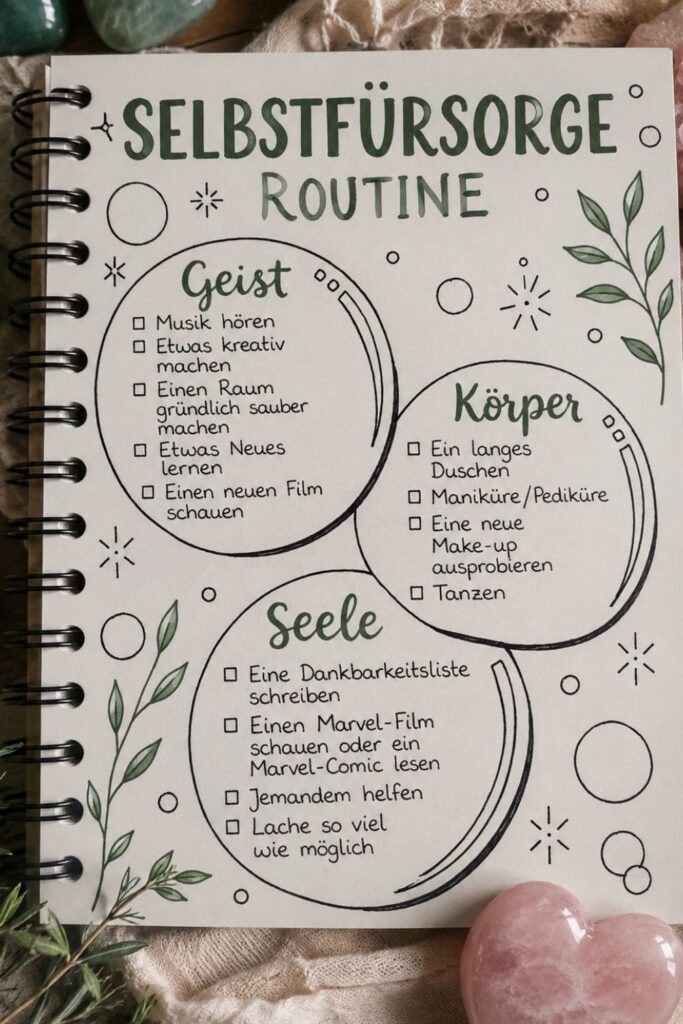 SELBSTFÜRSORGE
ROUTINE
Geist
☐ Musik hören
☐ Etwas kreativ
machen
☐ Einen Raum
gründlich sauber
machen
☐ Etwas Neues
lernen
☐ Einen neuen Film
schauen
Körper
☐ Ein langes
Duschen
☐ Maniküre/Pediküre
☐ Eine neue
Make-up
ausprobieren
☐ Tanzen
Seele
☐ Eine Dankbarkeitsliste
schreiben
☐ Einen Marvel-Film
schauen oder ein
Marvel-Comic lesen
☐ Jemandem helfen
☐ Lache so viel
wie möglich